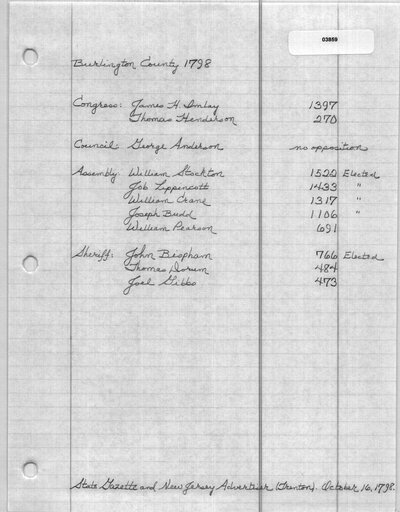 03859
Burlington County 1798
Congress: James H. Imlay 1397
Thomas Henderson 270
Council: George Anderson no opposition
Assembly: William Stockton 1522 Elected
Job Lippencott 1433 "
William Crane 1317 "
Joseph Budd 1106 "
William Pearson 691
Sheriff: John Bispham 766 Elected
Thomas 484
Joel Gibbs 473
State Gazette and New Jersey Advertiser (Trenton). October 16, 1798.